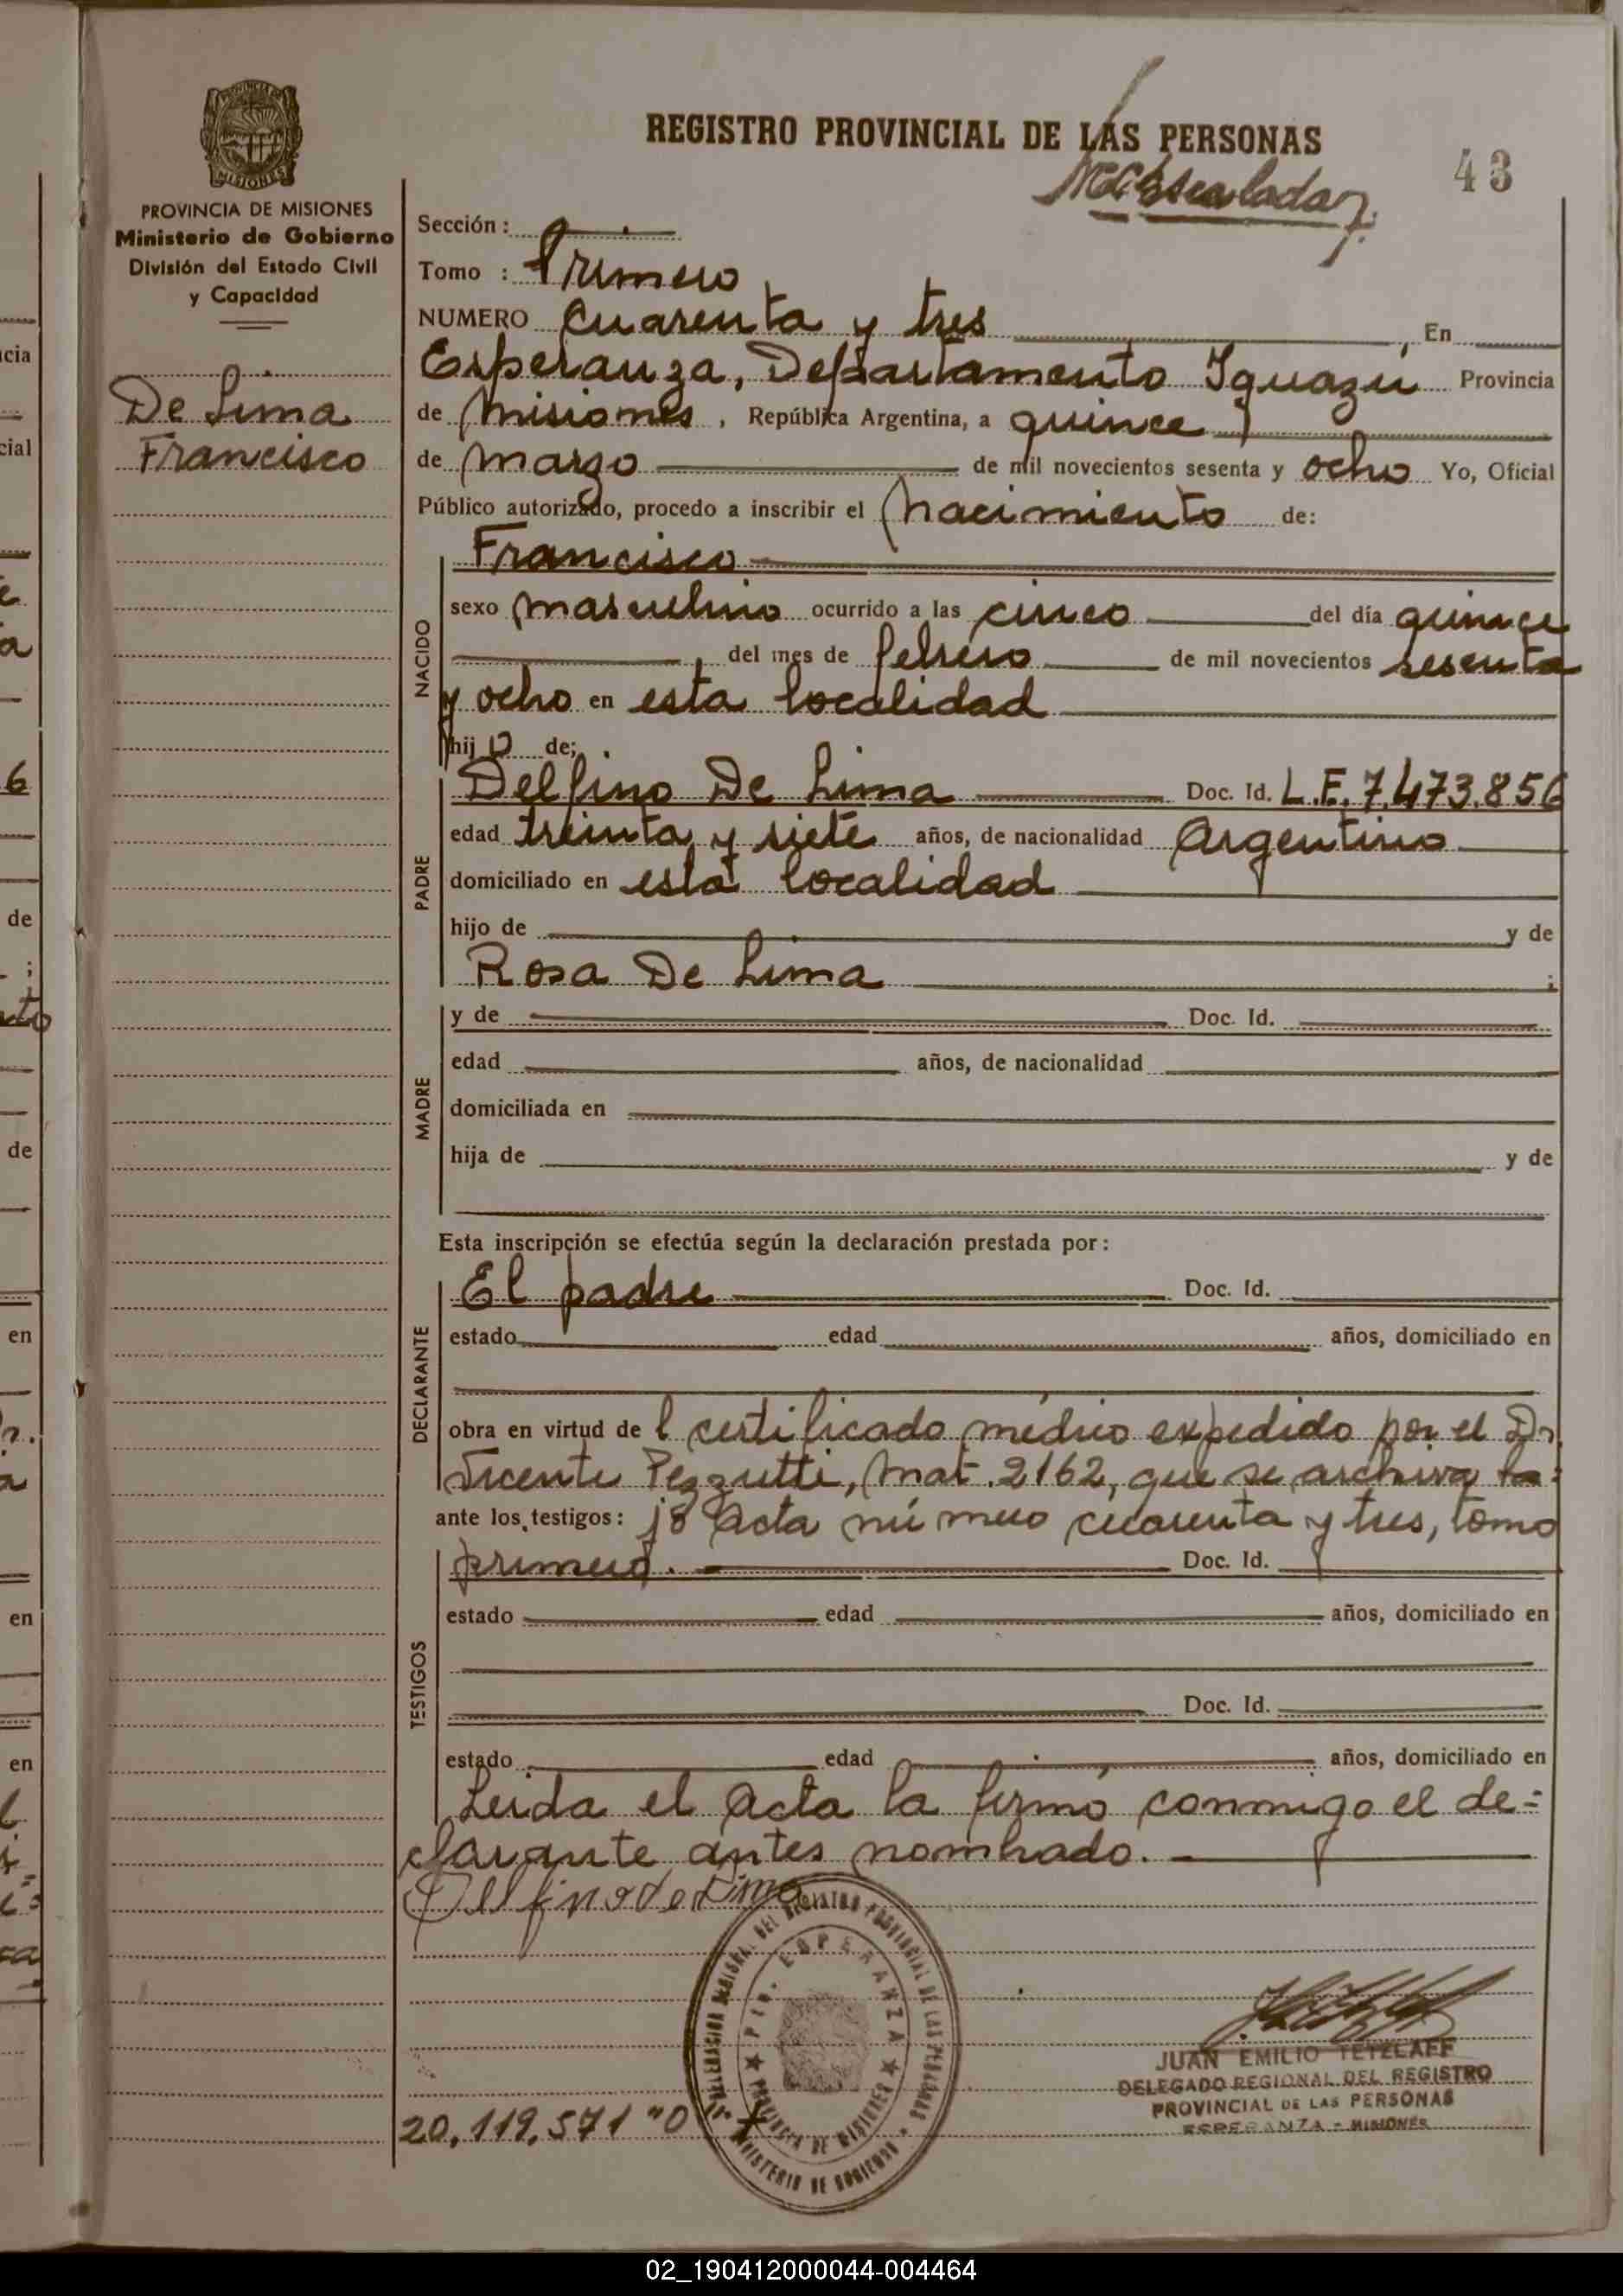 REGISTRO PROVINCIAL DE LAS PERSONAS
43
PROVINCIA DE MISIONES
Ministerio de Gobierno
División del Estado Civil
y Capacidad
De Lima
Francisco
Sección:
Tomo : Primero
NUMERO cuarenta y tres , En
Esperanza, Departamento Iguazú Provincia
de Misiones , República Argentina, a quince
de marzo de mil novecientos sesenta y ocho Yo, Oficial
Público autorizado, procedo a inscribir el nacimiento de:
Francisco
NACIDO
sexo masculino ocurrido a las cinco del día quince
, del mes de febrero de mil novecientos sesenta
y ocho en esta localidad
hijo de;
PADRE
Delfino De Lima Doc. Id. L.E. 7.473.856
edad treinta y siete años, de nacionalidad Argentino
domiciliado en esta localidad
hijo de y de
Rosa De Lima ;
MADRE
y de Doc. Id.
edad años, de nacionalidad
domiciliada en
hija de y de
Esta inscripción se efectúa según la declaración prestada por:
DECLARANTE
El padre Doc. Id.
estado edad años, domiciliado en
obra en virtud de l certificado médico expedido por el Dr.
Vicente Pezzutti, Mat. 2162, que se archiva ba=
ante los testigos: jo Acta número cuarenta y tres, tomo
TESTIGOS
primero. Doc. Id.
estado edad años, domiciliado en
Doc. Id.
estado edad años, domiciliado en
Leida el Acta la firmó conmigo el de=
clarante antes nombrado.
Delfino de Lima
REGISTRO PROVINCIAL DE LAS PERSONAS
MINISTERIO DE GOBIERNO
ESPERANZA
PROVINCIA DE MISIONES
JUAN EMILIO TETZLAFF
DELEGADO REGIONAL DEL REGISTRO
PROVINCIAL DE LAS PERSONAS
ESPERANZA - MISIONES
20.119.571
cia
cial
6
de
de
en
en
en
02_190412000044-004464